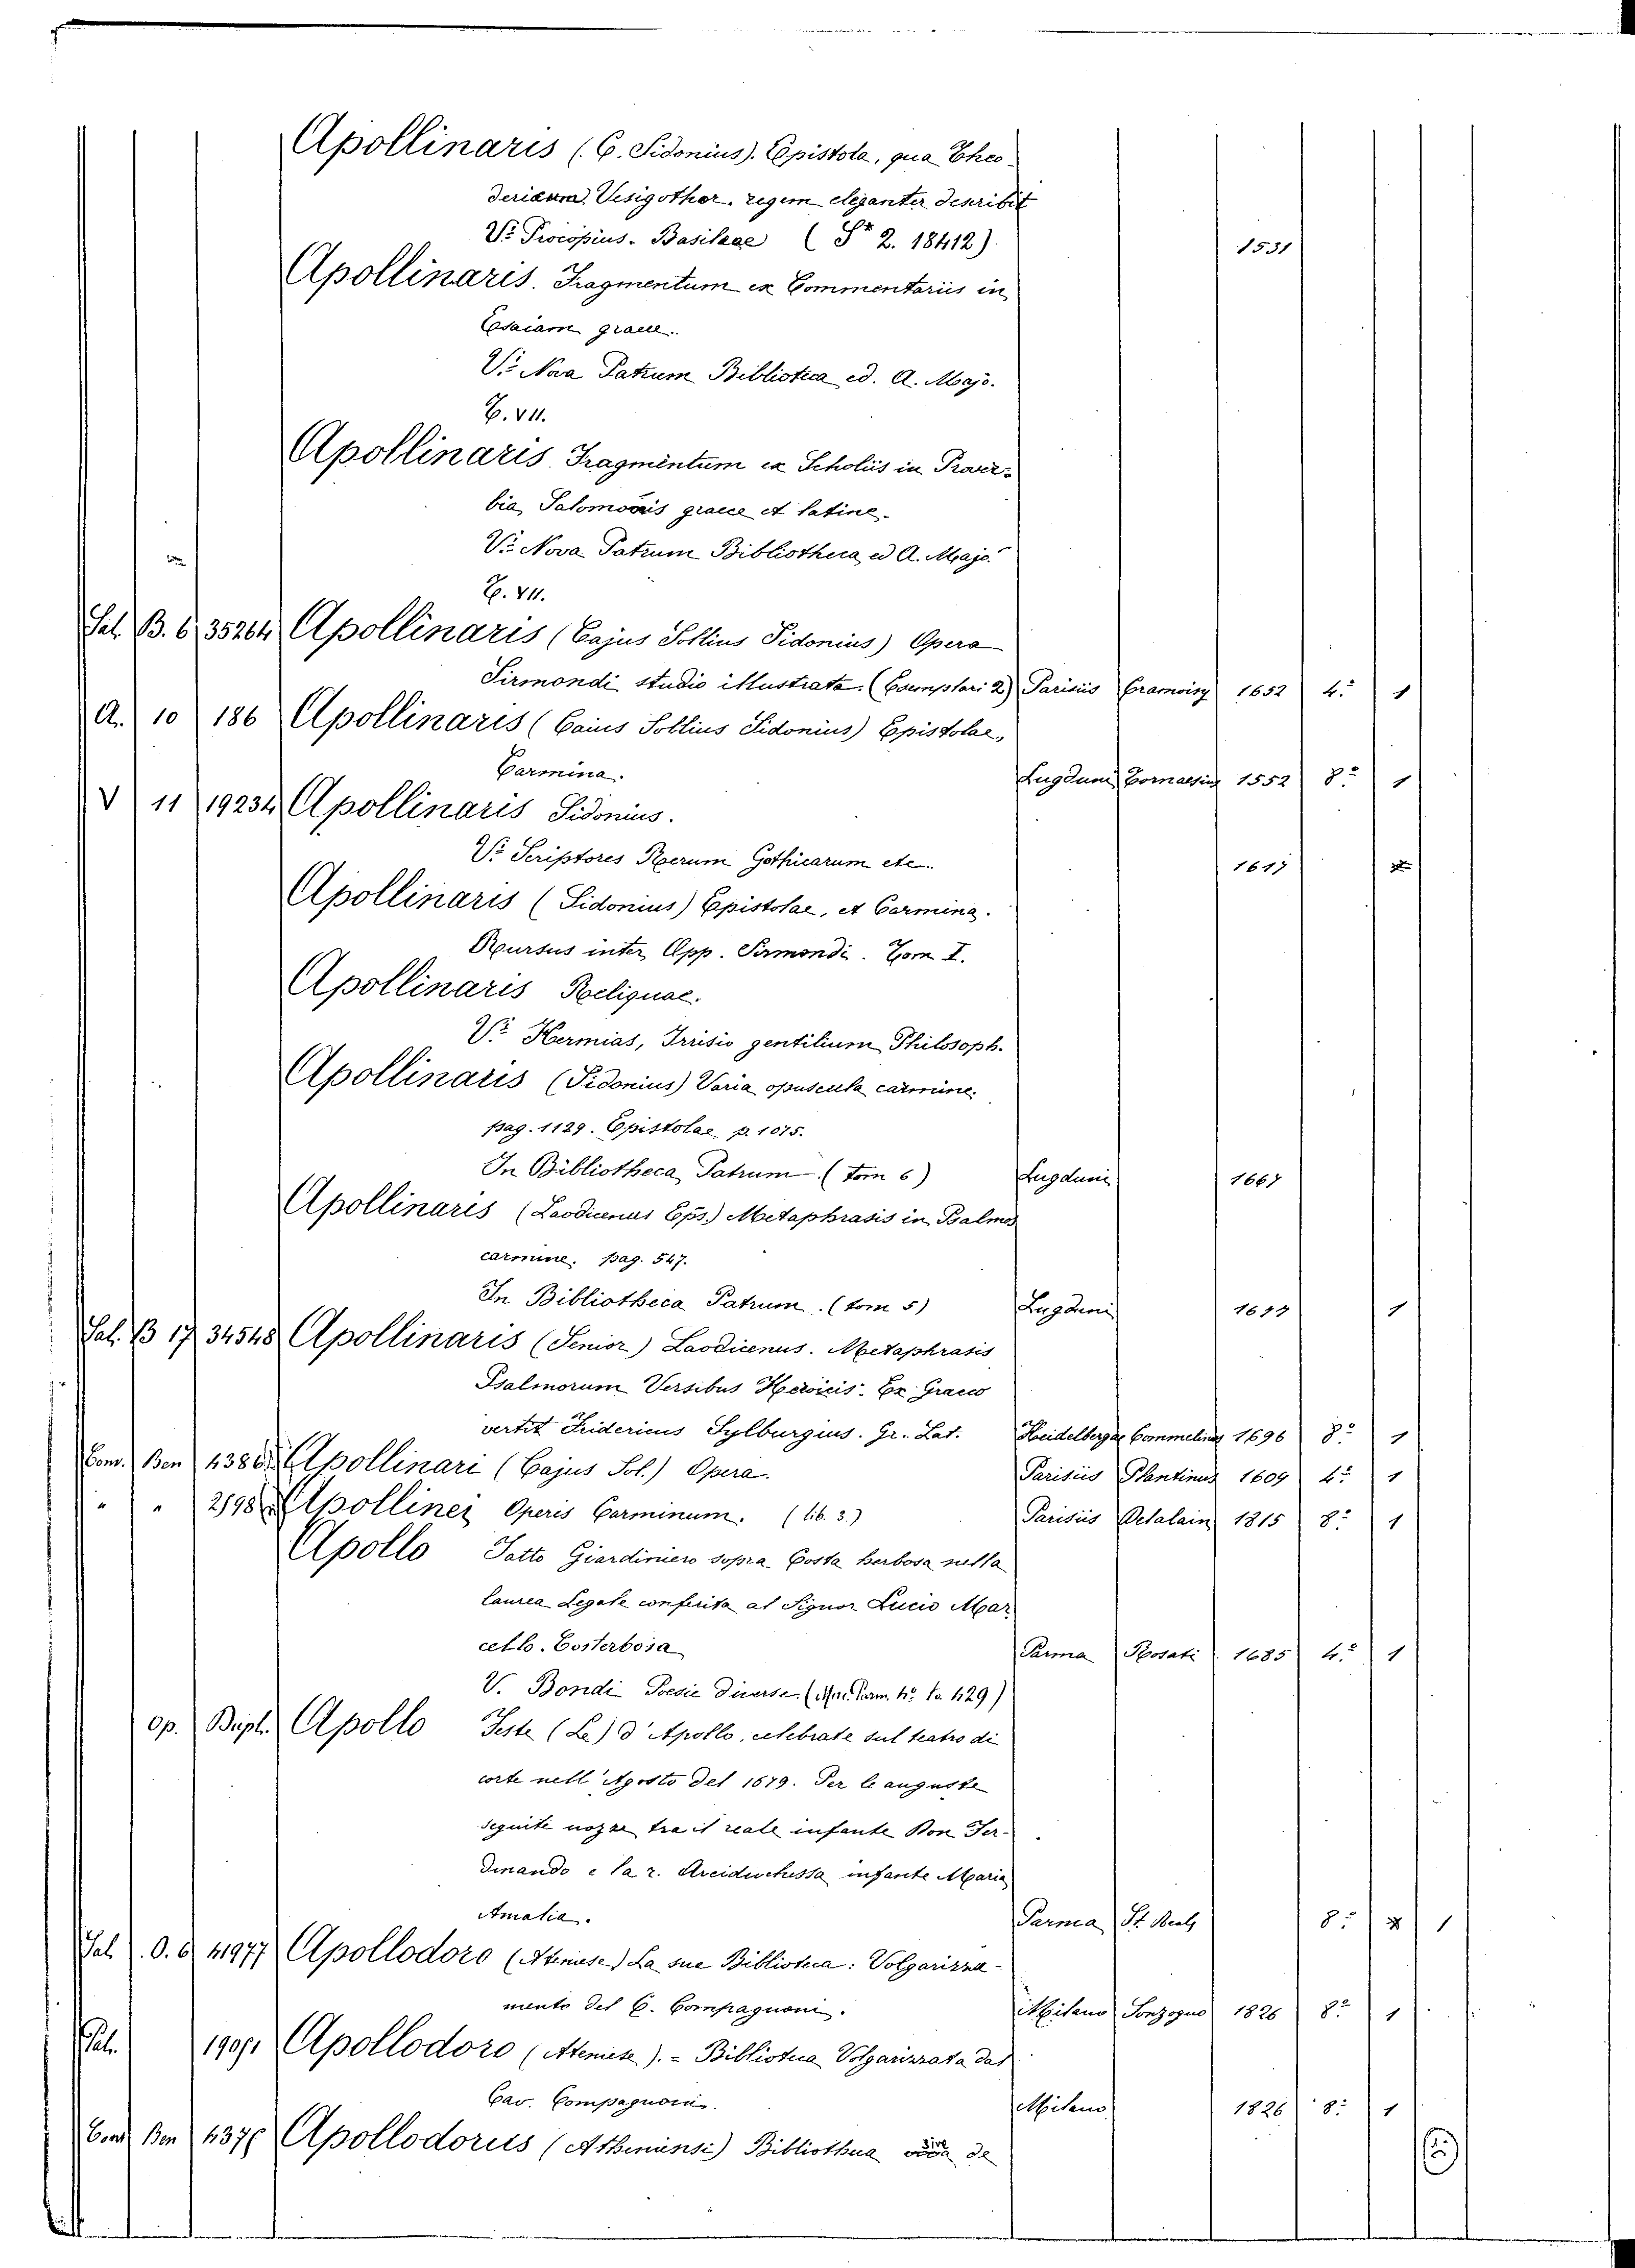 Apollinaris (C. Sidonius). Epistola, qua Theo-
dericum Vesigothor. regem eleganter describit
V.i Procopius. Basileae (Sr. 2. 18412) 1531
Apollinaris. Fragmentum ex Commentariis in
Esaiam graece.
V.i Nova Patrum Bibliotica ed. A. Majo.
T. VII.
Apollinaris Fragmentum ex Scholiis in Prover-
bia Salomonis graece et latine.
V.i Nova Patrum Bibliotheca ed A. Majo.
T. VII.
Sal. B. 6 35264 Apollinaris (Cajus Sollius Sidonius) Opera
Sirmondi studio illustrata. (Esemplari 2) Parisiis Cramoisy 1652 4.º 1
A. 10 186 Apollinaris (Caius Sollius Sidonius) Epistolae,
Carmina. Lugduni Tornaesius 1552 8.º 1
V 11 19234 Apollinaris Sidonius.
V.i Scriptores Rerum Gothicarum etc. 1617
Apollinaris (Sidonius) Epistolae, et Carmina.
Rursus inter Opp. Sirmondi. Tom I.
Apollinaris Reliquae.
V.i Hermias, Irrisio gentilium Philosoph.
Apollinaris (Sidonius) Varia opuscula carmine.
pag. 1129. Epistolae p. 1075.
In Bibliotheca Patrum (tom 6) Lugduni 1667
Apollinaris (Laodicenus Eps.) Metaphrasis in Psalmos
carmine. pag. 547.
In Bibliotheca Patrum. (tom 5) Lugduni 1677 1
Sal. B 17 34548 Apollinaris (Senior) Laodicenus. Metaphrasis
Psalmorum Versibus Heroicis. Ex Graeco
vertit Fridericus Sylburgius. Gr. Lat. Heidelbergae Commelinus 1696 8.º 1
Conv. Ben 4386 Apollinari (Cajus Sol.) Opera. Parisiis Plantinus 1609 4.º 1
" " 2198 Apollinei Operis Carminum. (lib. 3.) Parisiis Detalain 1815 8.º 1
Apollo Fatto Giardiniero sopra Costa herbosa nella
laurea Legale conferita al Signor Lucio Mar
cello. Costerbosa Parma Rosati 1685 4.º 1
V. Bondi Poesie diverse. (Misc. Parm. 4.º to. 429)
Op. Bipl. Apollo Feste (Le) d'Apollo, celebrate sul teatro di
corte nell'Agosto del 1679. Per le auguste
seguite nozze tra il reale infante Don Fer-
dinando e la r. Arciduchessa infante Maria
Amalia. Parma St. Reale 8.º 1
Sal. O. 6 41977 Apollodoro (Ateniese) La sua Biblioteca: Volgarizza-
mento del C. Compagnoni. Milano Sonzogno 1826 8.º 1
Pal. Apollodoro (Ateniese). = Biblioteca Volgarizzata dal
Cav. Compagnoni. Milano 1826 8.º 1
Conv Ben 4376 Apollodorus (Atheniensi) Bibliotheca sive de